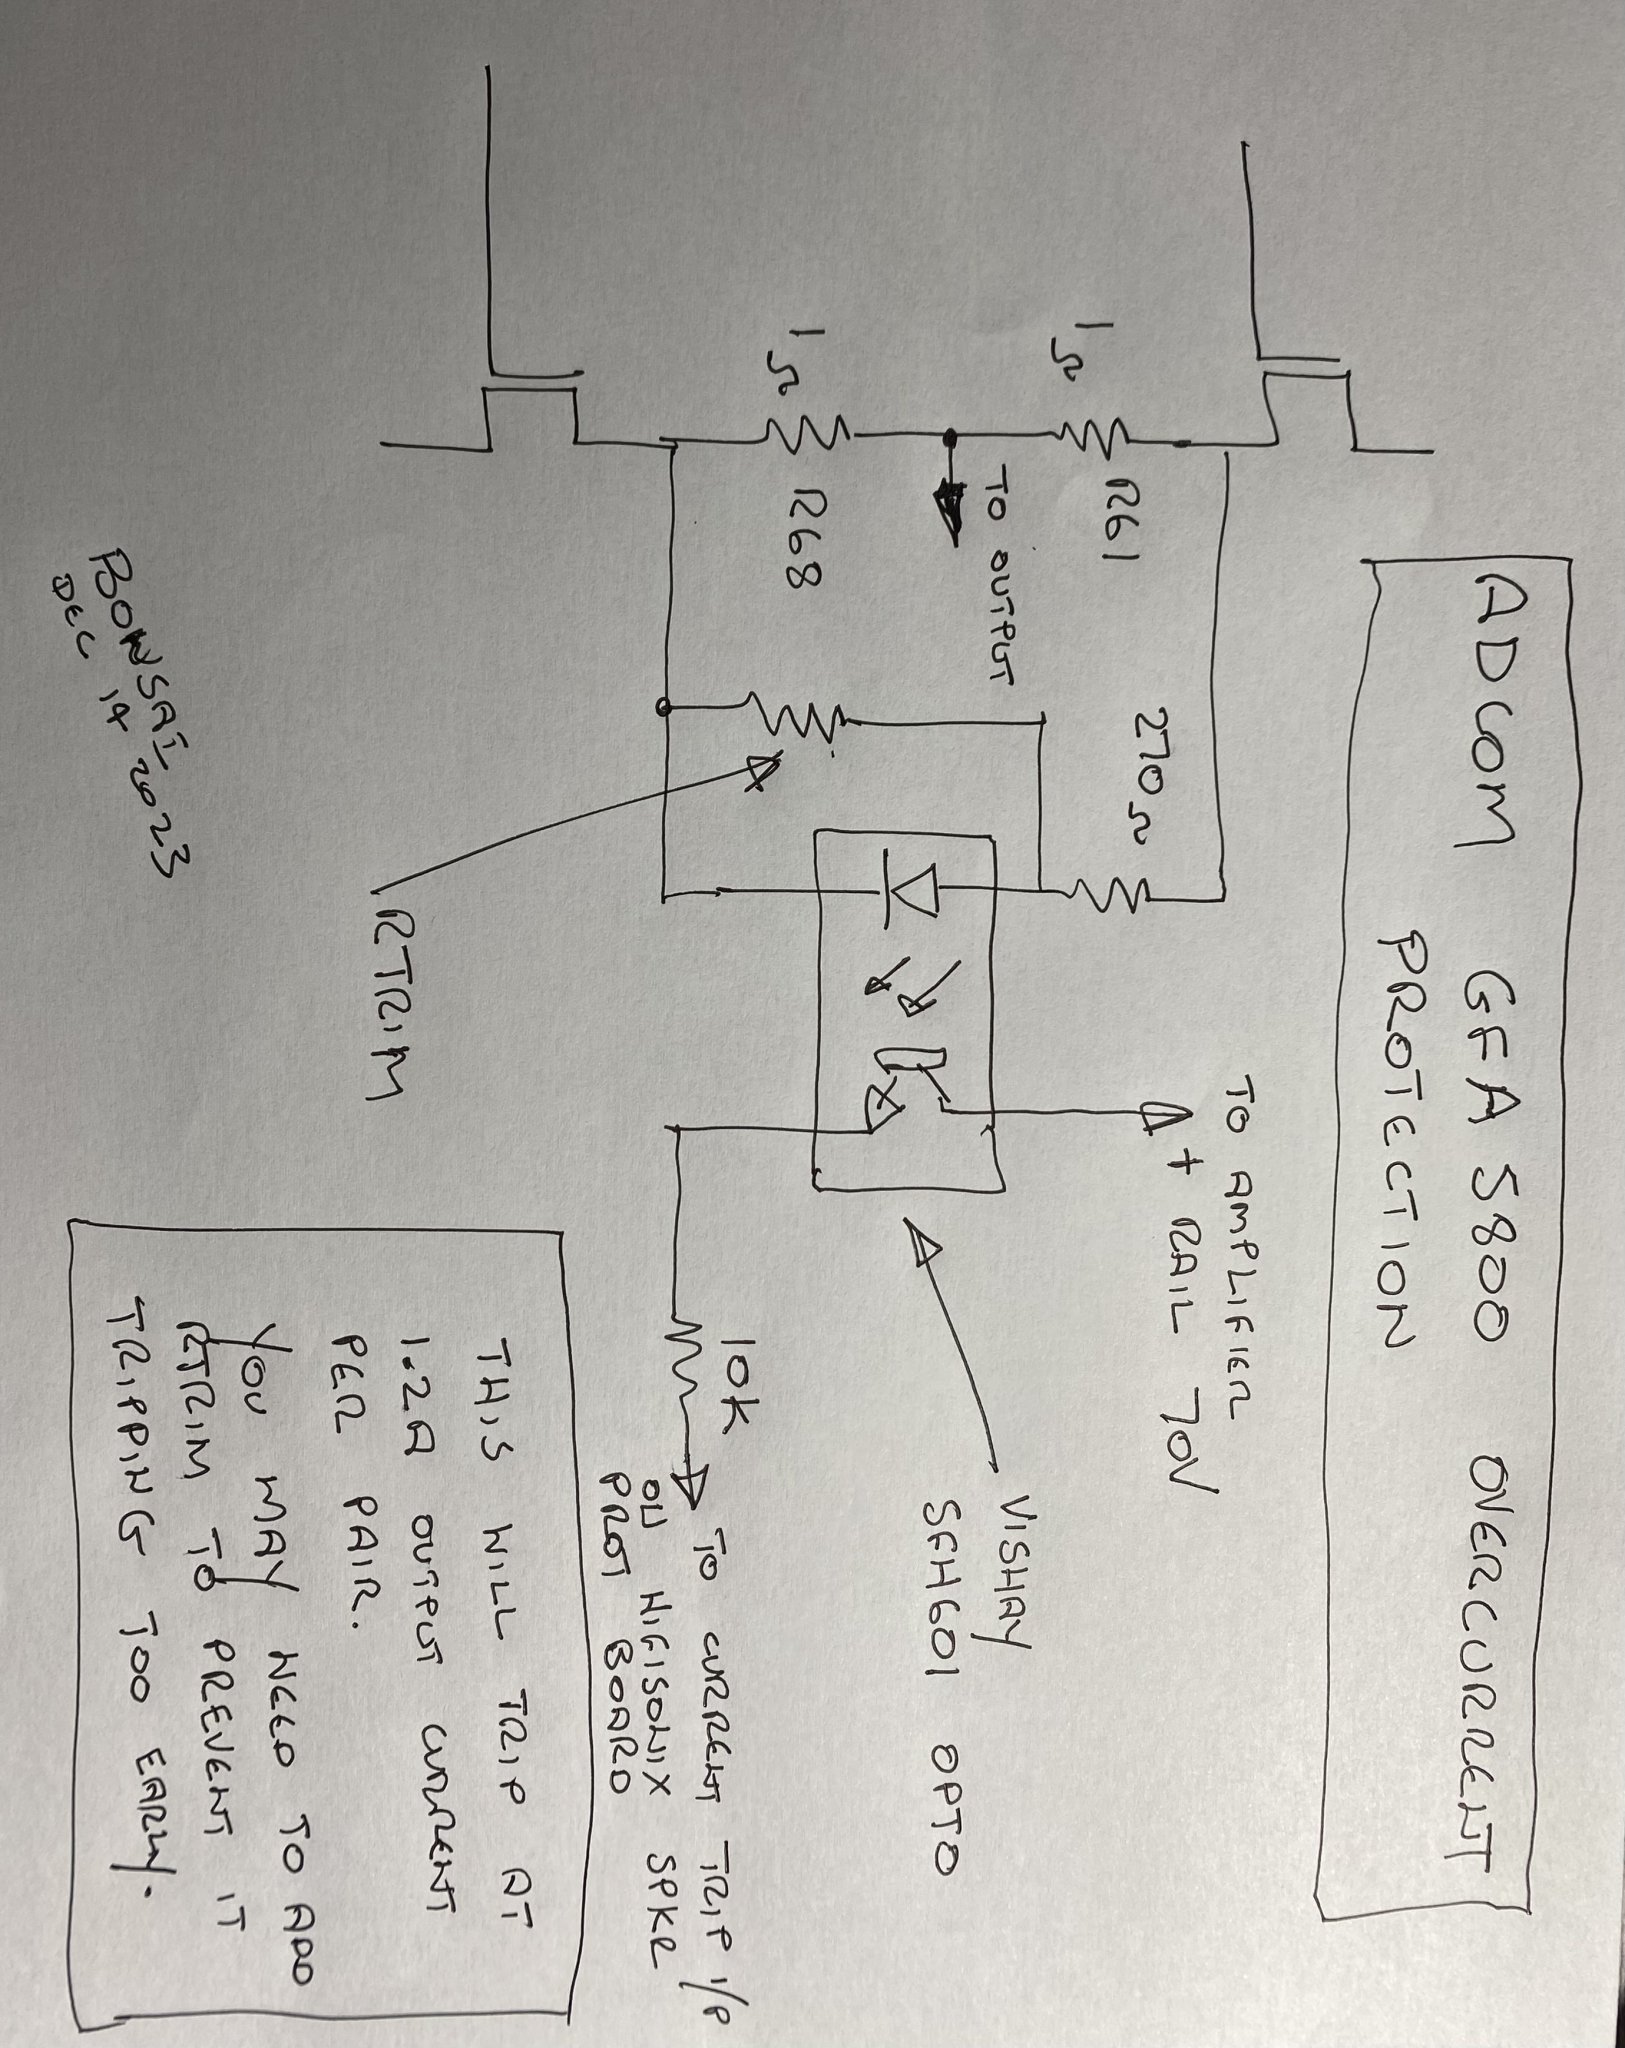 ADCOM GFA 5800 OVERCURRENT
PROTECTION
TO AMPLIFIER
+ RAIL 70V
270Ω
1Ω
R61
TO OUTPUT
1Ω
R68
VISHAY
SFH601 OPTO
10K
TO CURRENT TRIP I/P
ON HIFISONIX SPKR
PROT BOARD
RTRIM
THIS WILL TRIP AT
1.2A OUTPUT CURRENT
PER PAIR.
YOU MAY NEED TO ADD
RTRIM TO PREVENT IT
TRIPPING TOO EARLY.
BONSAI
DEC 14 2023